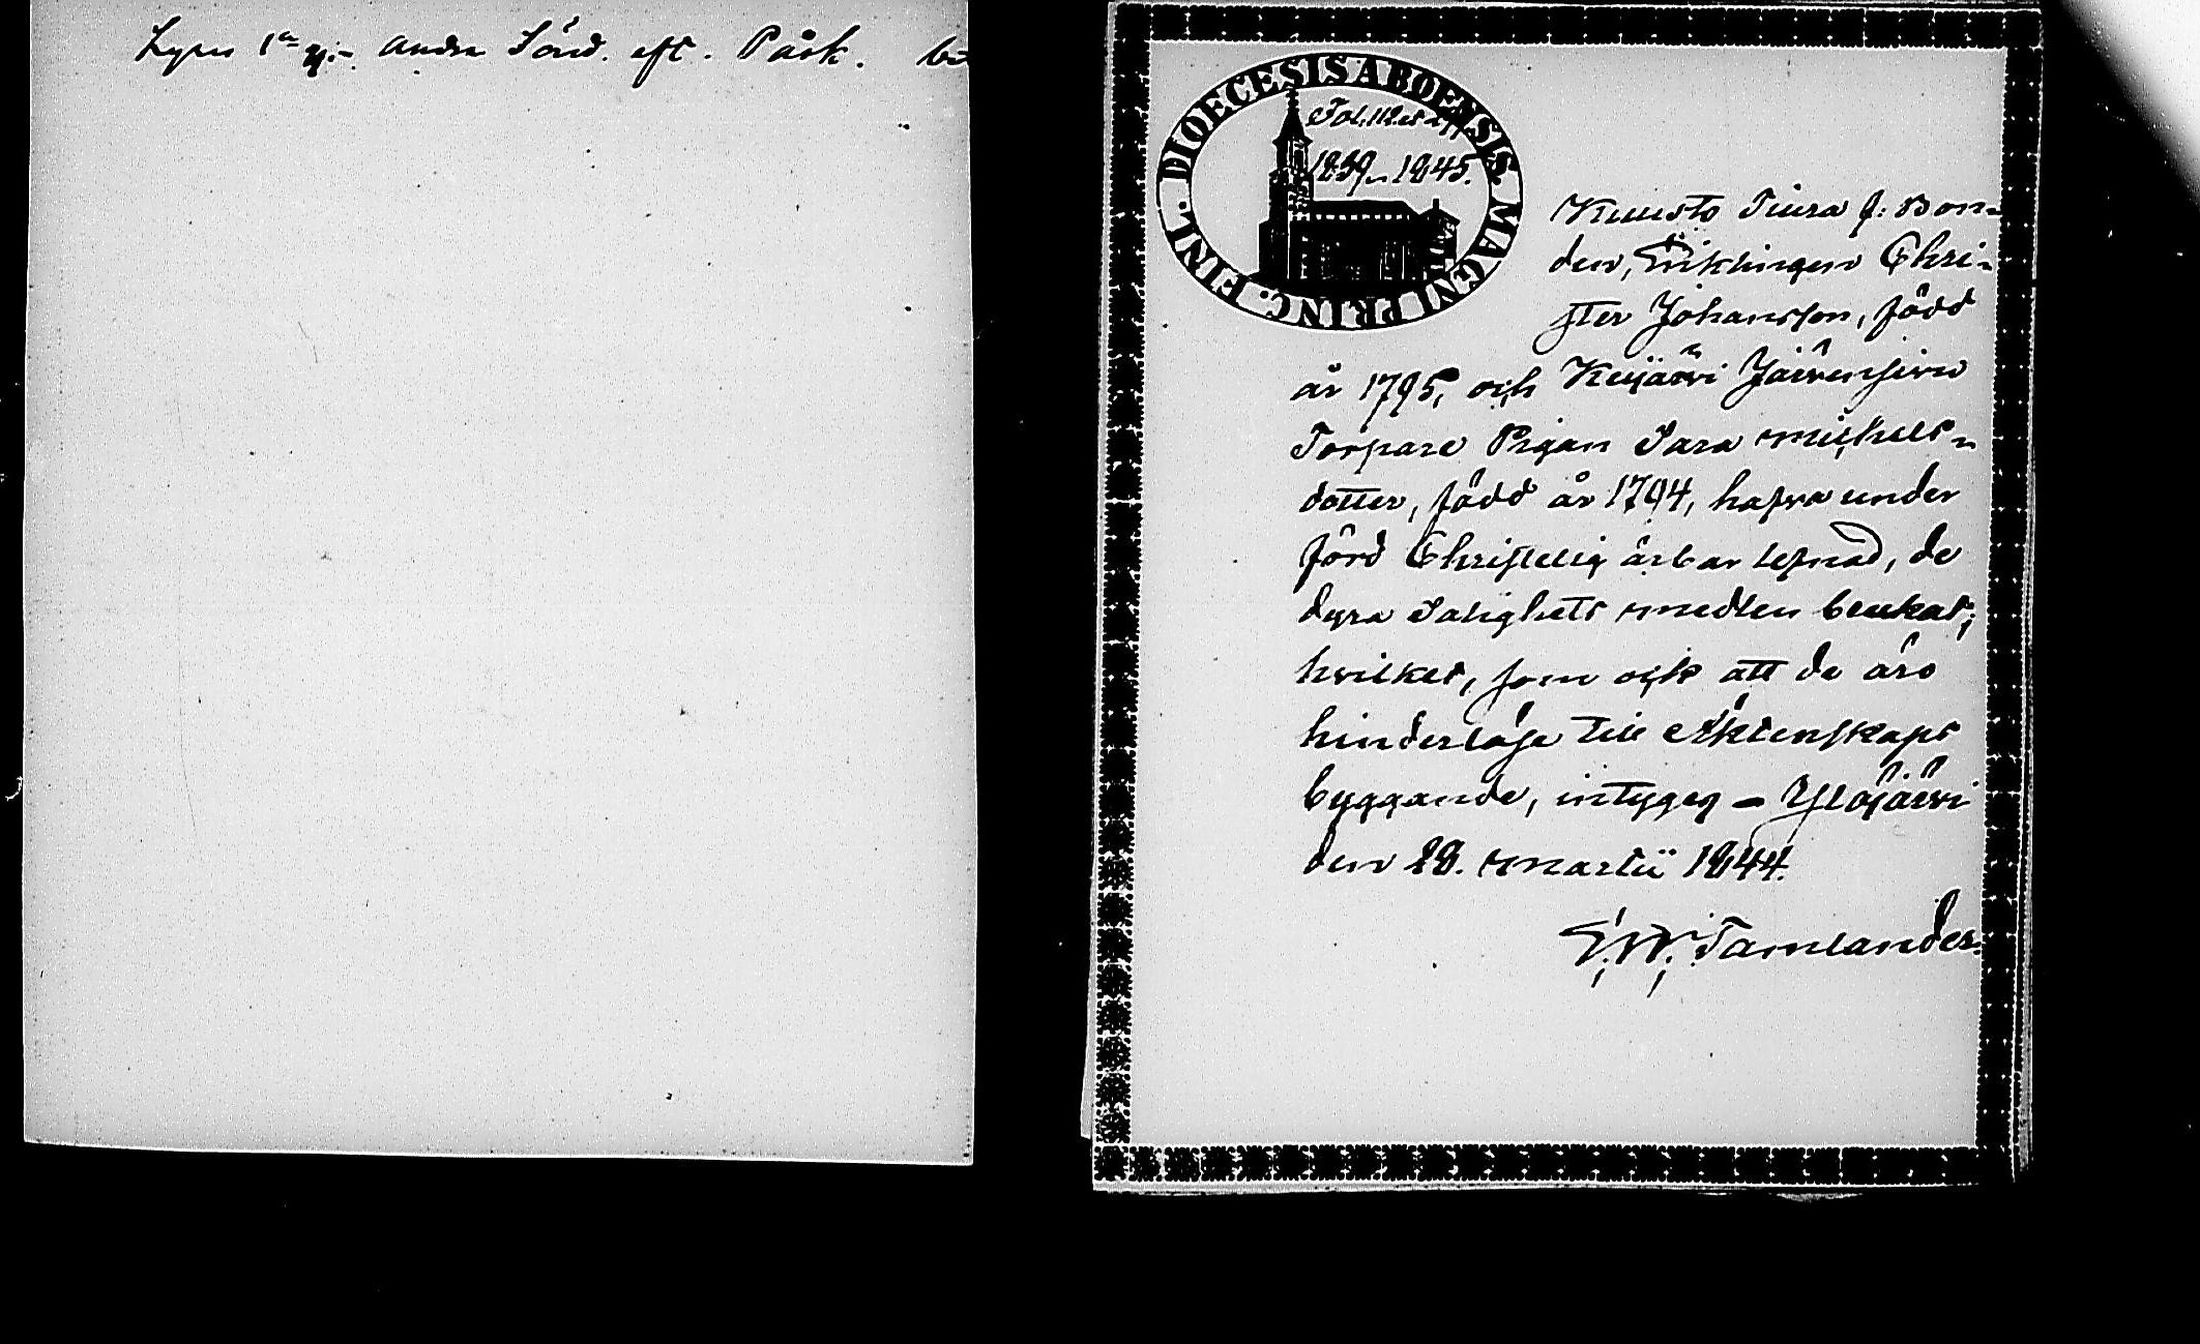 Lyses 1ª gg:n andra Sönd. eft. Påsk.
DIOECESIS ABOENSIS. MAGNI PRINC. FINL.
Fol. 112. et
1839–1845.
Kuusto Tiura f: Bon-
den, Enklingen Chri-
ster Johansson, född
år 1795, och Keijärvi
Torpare Pigan Sara Michels-
dotter, född år 1794, hafva under
förd Christelig ärbar lefnad, de
dyra Salighets medlen brukat;
hvilket, som ock att de äro
hinderlöse till Äktenskaps
byggande, intygeg – Ylöjärvi
den 28. Martii 1844.
E. W. Tamlander.